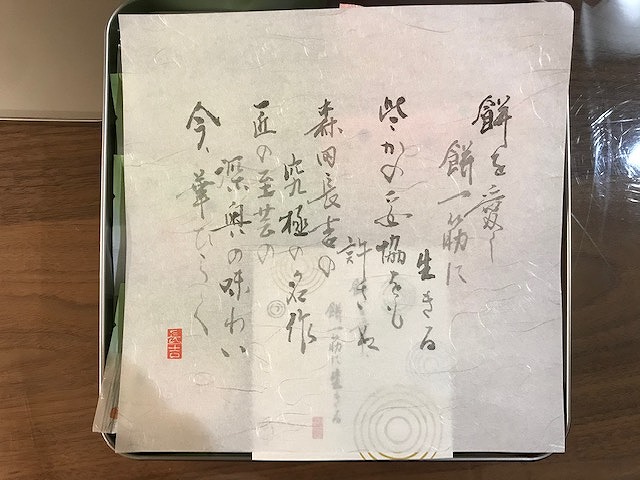 餅を愛し
餅一筋に
生きる
些かの妥協をも
許さぬ
森田長吉の
究極の名作
匠の至芸の
深奥の味わい
今、華ひらく
長吉
餅一筋に生きる